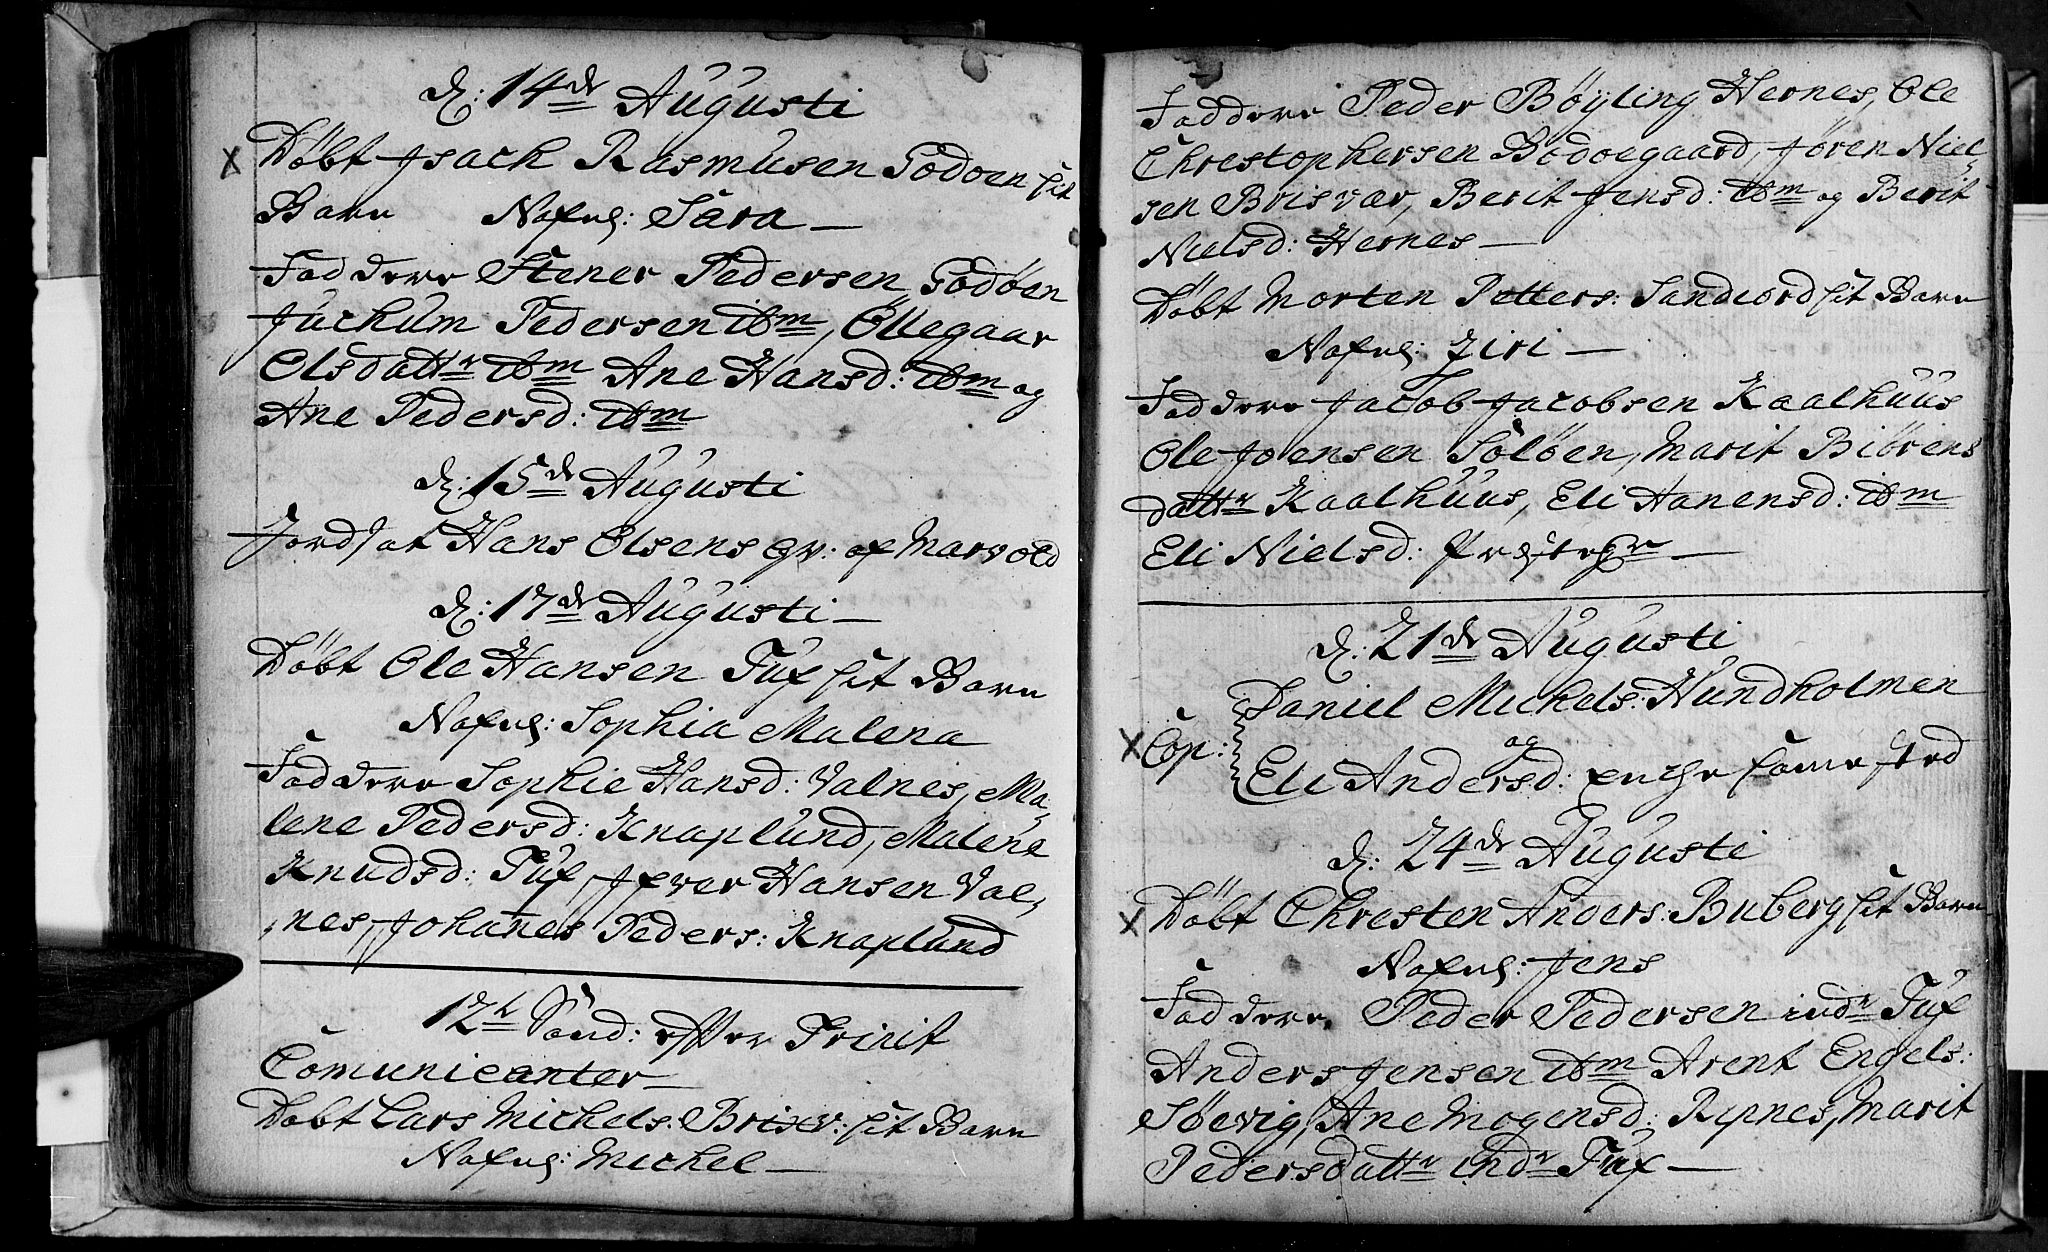 d: 14de Augusti
X Döbt Jsach Rasmusen Godöen sit
Barn Nafnl: Sara —
Faddere Stener Pedersen Godöen
Jochum Pedersen ibm, Ollegaar
Olsdattr ibm Ane Hansd: ibm og
Ane Pedersd: ibm
d: 15de Augusti
Jordsat Hans Olsens qv: af Marvold
d: 17de Augusti —
Döbt Ole Hansen Tuf sit Barn
Nafnl: Sophia Malena
Faddere Sophie Hansd: Valnes, Ma-
lene Pedersd: Knaplund, Malene
Knudsd: Tuf, Jfver Hansen Val-
nes, Johañes Peders: Knaplund
12te Sönd: efter Trinit
Comunicanter —
Döbt Lars Michels: Brisv: sit Barn
Nafnl: Michel —
Faddere Peder Böyling Hernes, Ole
Chrestophersen Bödöegaard, Jören Niel-
sen Brisvær, Berit Jensd: ibm og Berit
Nielsd: Hernes —
Döbt Morten Petters: Sandiord sit Barn
Nafnl: Ziri —
Faddere Jacob Jacobsen Kaalhuus
Ole Joensen Solöen, Marit Biörens
dattr Kaalhuus, Eli Hanensd: ibm
Eli Nielsd: —
d: 21de Augusti
Daniel Michels: Hundholmen
X Cop: og
Eli Andersd: enche same sted
d: 24de Augusti
X Döbt Chresten Anders: Buberg sit Barn
Nafnl: Jens
Faddere Peder Pedersen indr Tuf
Anders Jensen ibm Arent Engels:
Söevig, Ane Mogensd: Ripnes, Marit
Pedersdattr indr Tuf —